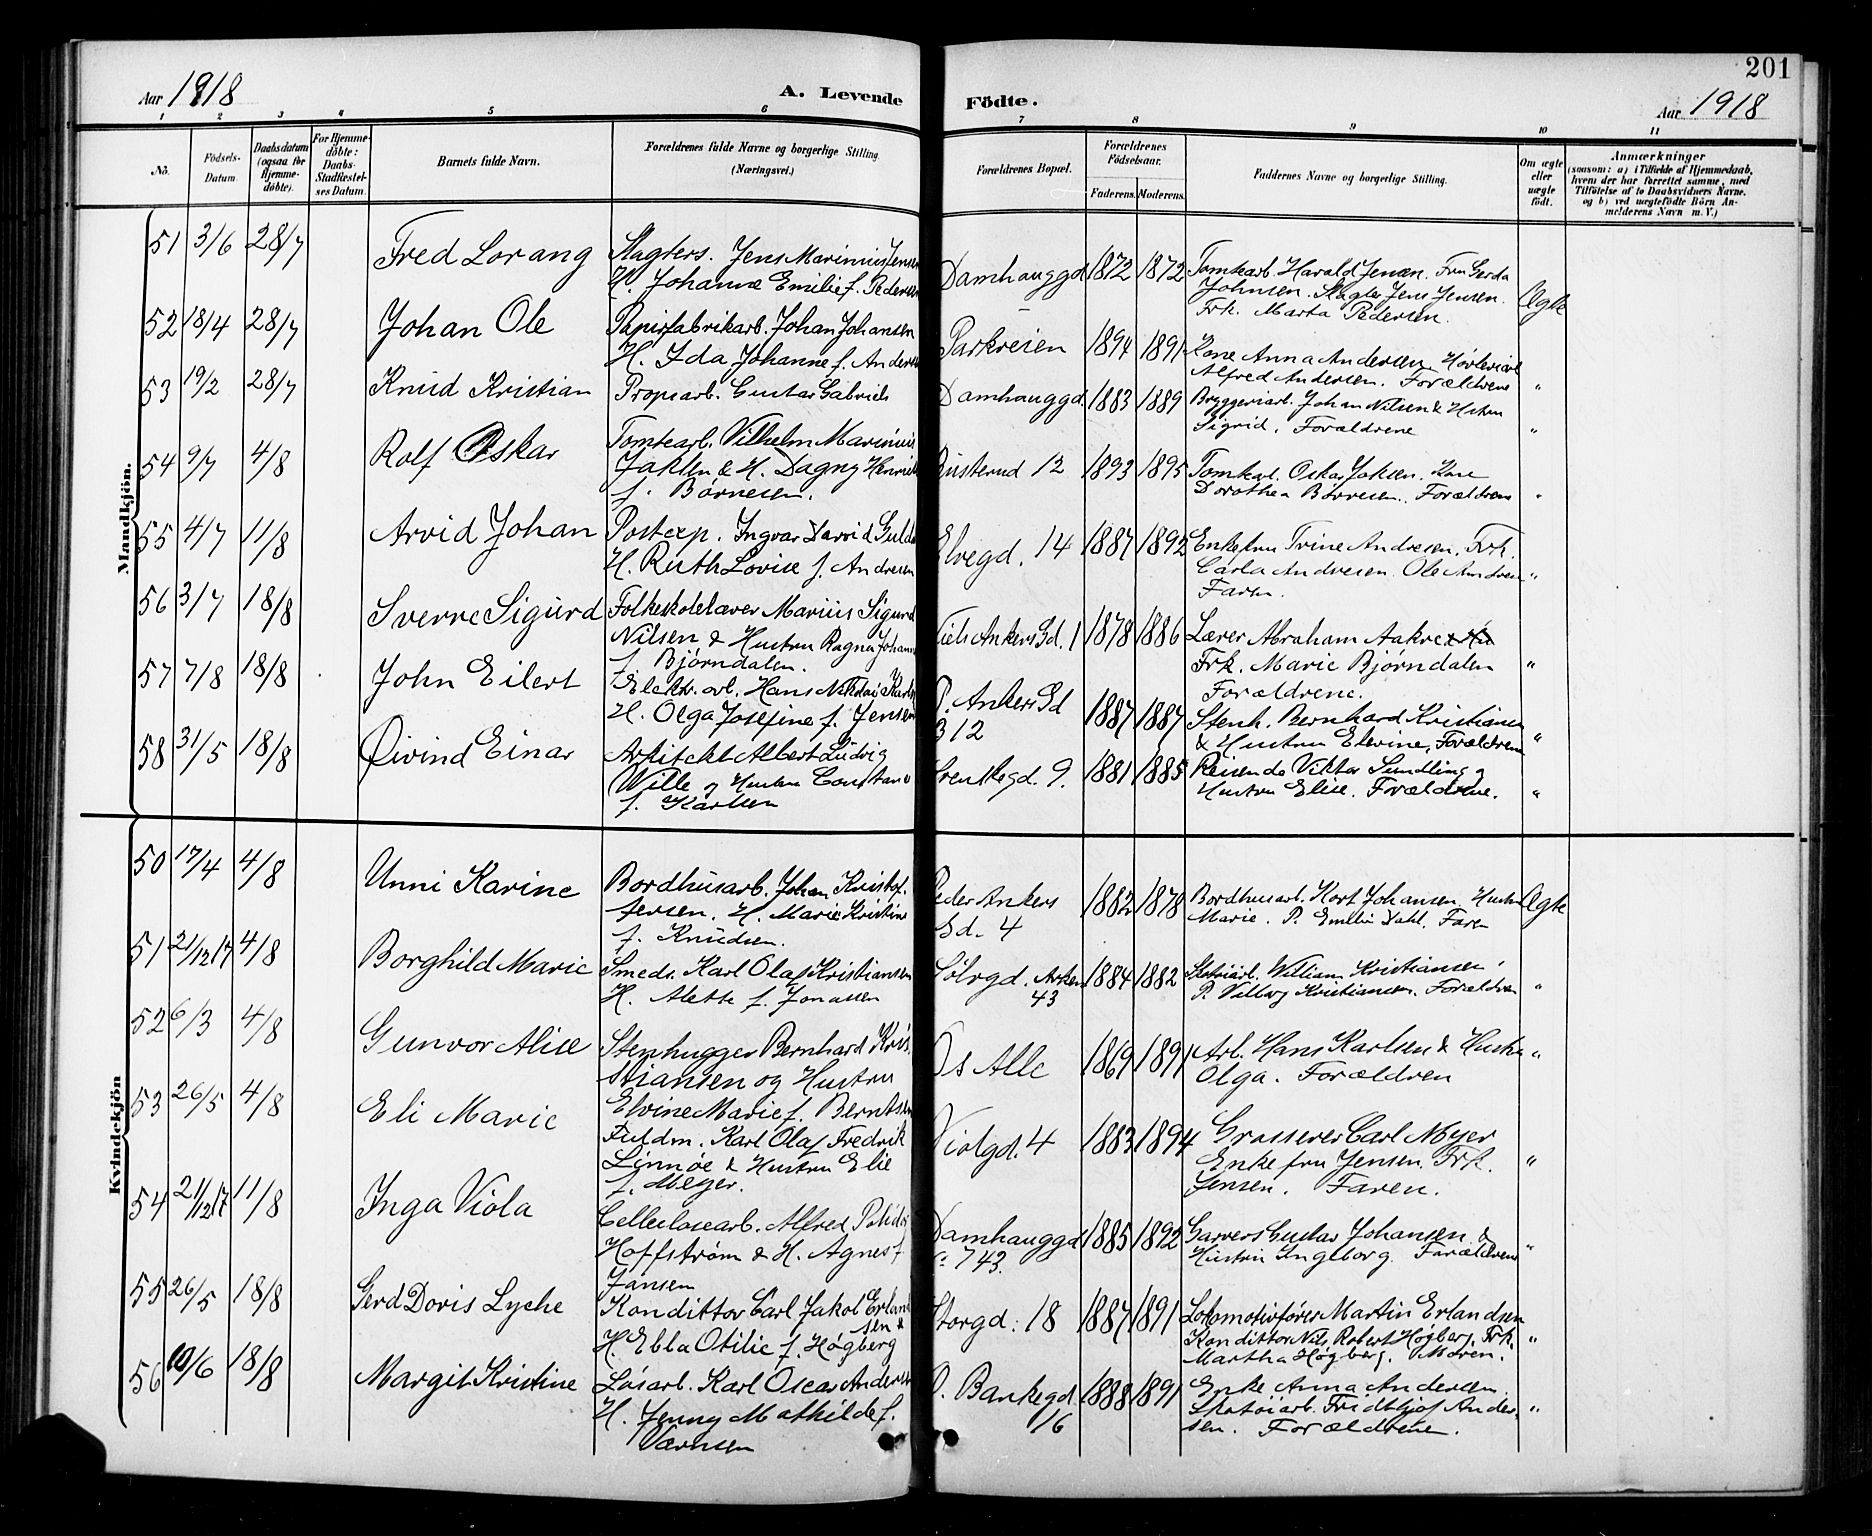 201
Aar 1918
A. Levende Födte.
Aar 1918
1 2 3 4 5 6 7 8 9 10 11
No.
Födsels-Datum.
Daabsdatum (ogsaa for Hjemme-döbte).
For Hjemme-döbte: Daabs-Stadfæstelses Datum.
Barnets fulde Navn.
Forældrenes fulde Navne og borgerlige Stilling (Næringsvei.)
Forældrenes Bopæl.
Forældrenes Födselsaar.
Faderens. Moderens.
Faddernes Navne og borgerlige Stilling.
Om ægte eller uægte födt.
Anmærkninger
(saasom: a) i Tilfælde af Hjemmedaab, hvem der har forrettet samme, med Tilföielse af to Daabsvidners Navne. og b) ved uægtefödte Börn Anmelderens Navn m. V.)
Mandkjön.
51 3/6 28/7 Fred Lorang
Slagters. Jens Marinius Jensen
H. Johanne Emilie f. Pedersen
Damhauggd 1872 1872
Tomtearb. Harald Jensen. Fru Gerda
Johnsen. Slagter Jens Jensen.
Frk. Marta Pedersen.
Ægte
52 18/4 28/7 Johan Ole
Papirfabrikarb. Johan Johansen
H. Ida Johanne f. Andersen
Parkveien 1894 1891
Kone Anna Andersen
Alfred Andersen. Forældrene "
53 19/2 28/7 Knud Kristian
Propsarb. Gustav Gabriels
Damhauggd. 1883 1889
Bryggeriarb. Johan Nilsen & Hustru
Sigrid. Forældrene "
54 9/7 4/8 Rolf Oskar
Tomtearb. Vilhelm Marinius
H. Dagny
f. Børresen.
12 1893 1895
Oskar
Dorothea Børresen. Forældrene "
55 4/7 11/8 Arvid Johan
Postexp. Ingvar
H. Ruth Lovise f. Andresen
Elvegd. 14 1887 1892
Enkefru Trine Andresen. Frk.
Carla Andresen. Ole Andresen
Faren. "
56 3/7 18/8 Sverre Sigurd
Folkeskolelærer Marius Sigurd
Nilsen & Hustru Ragna Johanne
f. Bjørndalen.
Niels Ankers Gd. 1 1878 1886
Lærer Abraham Aakre
Frk. Marie Bjørndalen
Forældrene. "
57 7/8 18/8 John Eilert
Elektr. arb. Hans Nikolai
H. Olga Josefine f. Jensen
P. Ankers Gd
B 12 1887 1887
Stenh. Bernhard Kristiansen
& Hustru Elvine, Forældrene "
58 31/5 18/8 Øivind Einar
Arkitekt Albert Ludvig
Wille og Hustru Constance
f. Karlsen
Svenskegd. 9. 1881 1885
Reisende Viktor Sundling og
Hustru Elise. Forældrene. "
Kvindekjön
50 17/4 4/8 Unni Karine
Bordhusarb. Johan Kristof-
fersen. H. Marie Kristine
f. Knudsen.
Peder Ankers
Gd. 4 1882 1878
Bordhusarb. Kort Johansen. Hustru
Marie. P. Emilie Dahl. Faren
Ægte
51 21/12 17 4/8 Borghild Marie
Smeds. Karl Olaf Kristiansen
H. Alette f. Jonassen
Sølvgd.
43 1884 1882
Skotøiarb. William Kristiansen,
P. Valborg Kristiansen. Forældrene "
52 6/3 4/8 Gunvor Alise
Stenhugger Bernhard Kri-
stiansen og Hustru
Elvine Marie f. Berntsen
Os Alle 1869 1891
Arb. Hans Karlsen & Hustru
Olga. Forældren "
53 26/5 4/8 Eli Marie
Fuldm. Karl Olaf Fredrik
Linnøe & Hustru Elie
f. Meyer.
Violgd. 4 1883 1894
Grosserer Carl Meyer
Enkefru Jensen. Frk.
Jensen. Faren. "
54 21/12 17 11/8 Inga Viola
Cellulosearb. Alfred
Hoffstrøm & H. Agnes f.
Jansen
Damhauggd
743. 1885 1892
Garvers Gustav Johansen &
Hustru Ingeborg. Forældrene "
55 26/5 18/8 Gerd Doris Lyche
Kondittor Carl Jakob Erland-
sen &
H. Ebba Otilie f. Høgberg
Storgd. 18 1887 1891
Lokomotivfører Martin Erlandsen
Kondittor Nils Robert Høgberg, Frk.
Martha Høgberg. Moren. "
56 10/6 18/8 Margit Kristine
Løsarb. Karl Oscar Andersen
H. Jenny Mathilde f.
Værnsen
O. Bankegd.
1/6 1888 1891
Enke Anna Andersen
Skotøiarb. Fridthjof Ander-
sen. Forældrene. "